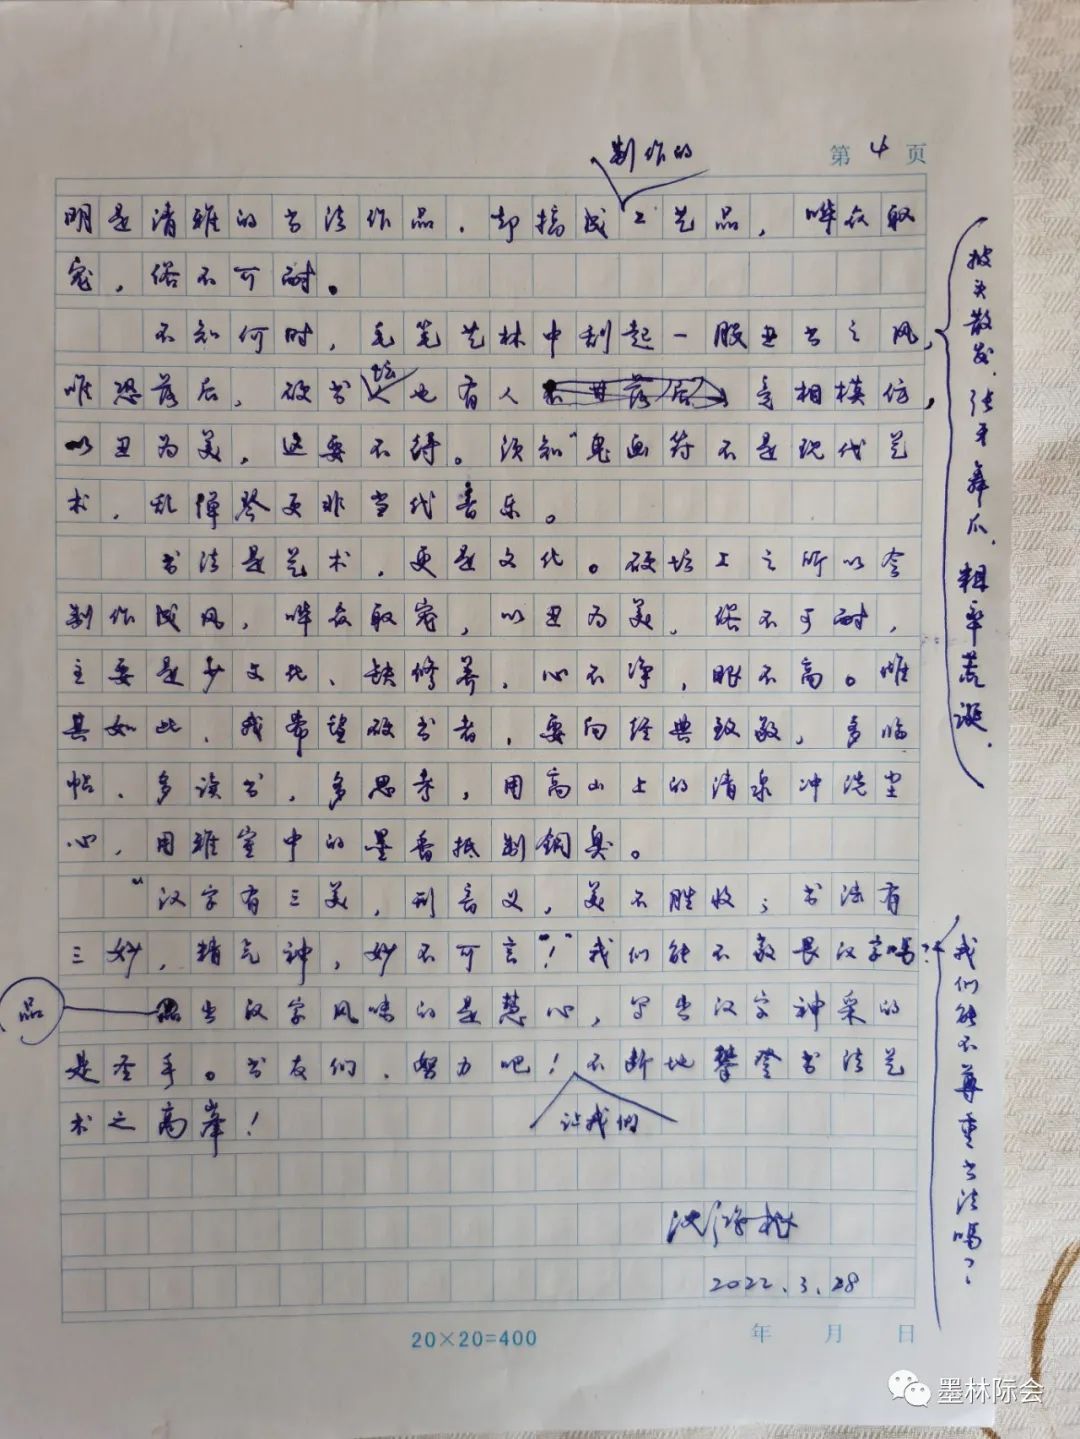 制作的
第4页
明是清雅的书法作品，却搞成工艺品，哗众取
宠，俗不可耐。
不知何时，毛笔艺林中刮起一股丑书之风，
披头散发，张牙舞爪，粗率荒诞，
唯恐落后，硬书坛也有人竞相模仿，
以丑为美，这要不得。须知"鬼画符不是现代艺
术，乱弹琴更非当代音乐。
书法是艺术，更是文化。硬坛上之所以会
制作成风，哗众取宠，以丑为美，俗不可耐，
主要是少文化、缺修养，心不净，眼不高。唯
其如此，我希望硬书者，要向经典致敬，多临
帖、多读书，多思考，用高山上的清泉冲洗尘
心，用雅室中的墨香抵制铜臭。
"汉字有三美，形音义，美不胜收；书法有
三妙，精气神，妙不可言"！我们能不敬畏汉字吗？
我们能不尊重书法吗？
品出汉字风味的是慧心，写出汉字神采的
是圣手。书友们，努力吧！不断地攀登书法艺
让我们
术之高峰！
沈鸿根
2022.3.28
20×20=400
年 月 日
墨林际会